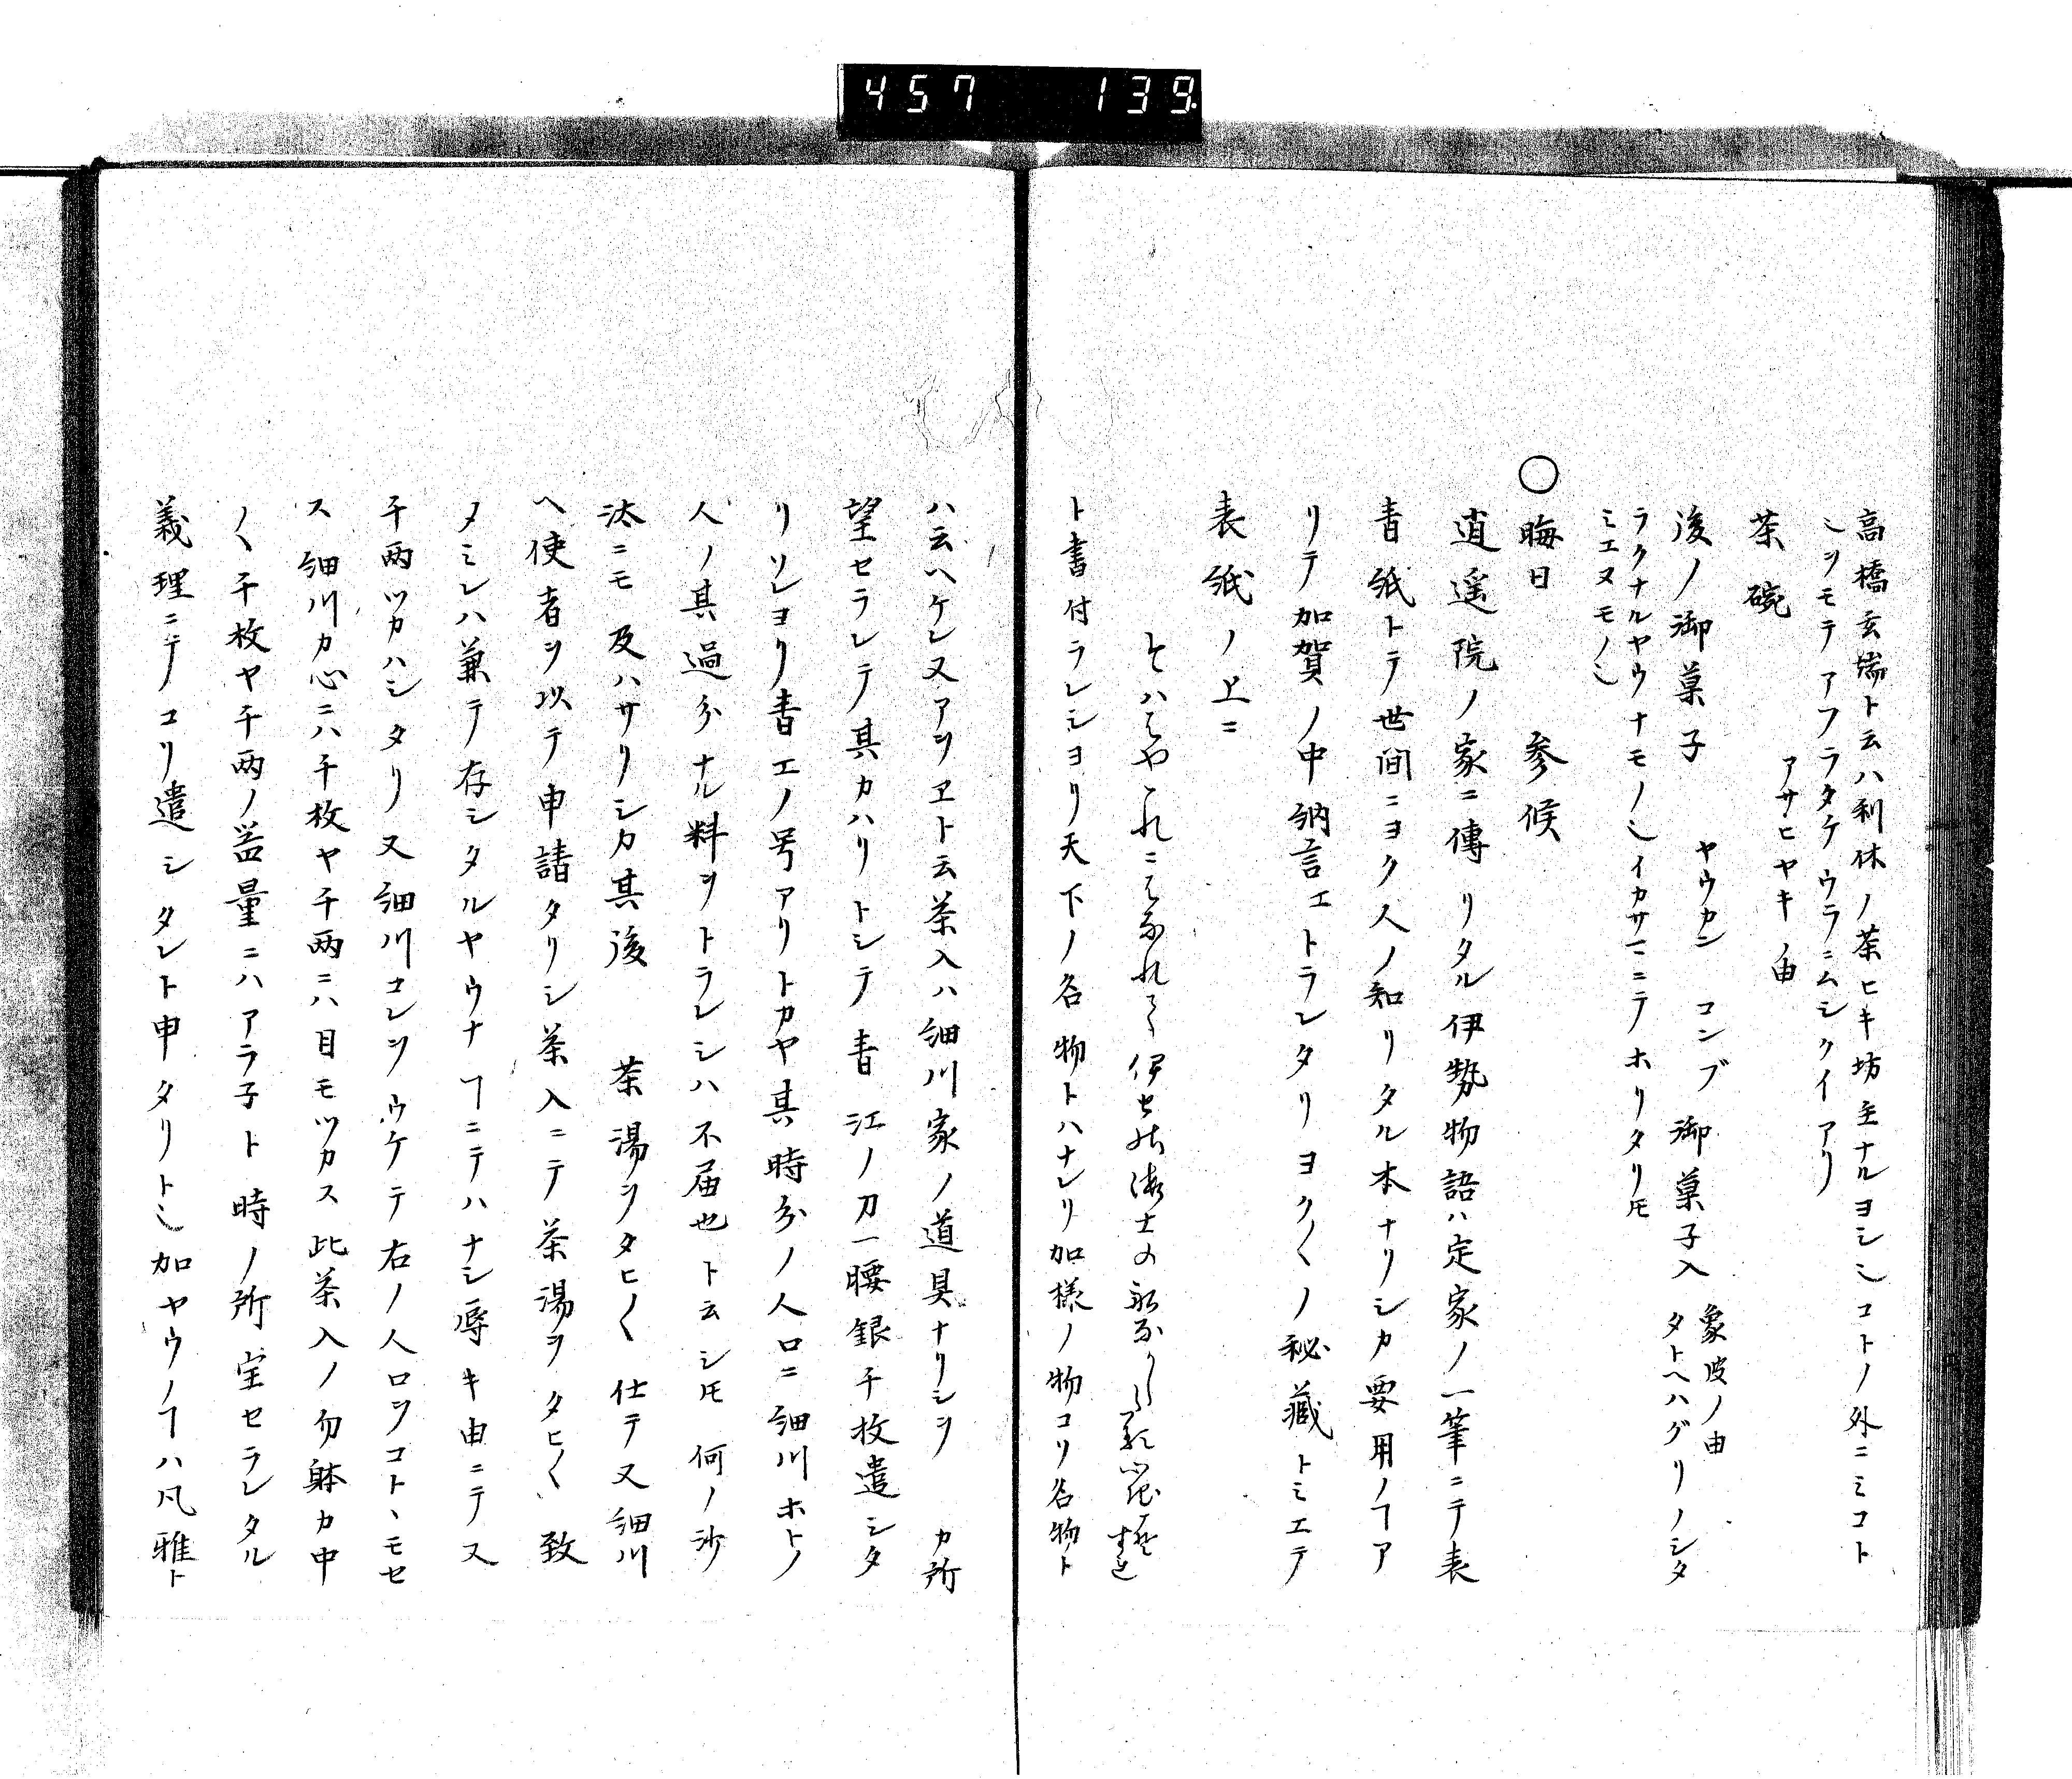 457 139
高橋玄端ト云ハ利休ノ茶ヒキ坊主ナルヨシ〆コトノ外ニミコト
〆ヲモテアフラタケウラニムシクイアリ
茶碗 アサヒヤキノ由
後ノ御菓子 ヤウカン コンブ 御菓子入 象皮ノ由
タトヘハグリノシタ
ラクナルヤウナモノ〆イカサマニテホリタリ𪜈
ミエヌモノ〆
○晦日 参候
逍遥院ノ家ニ傳リタル伊勢物語ハ定家ノ一筆ニテ表
青紙トテ世間ニヨク人ノ知リタル本ナリシカ要用ノヿア
リテ加賀ノ中納言エトラレタリヨク〳〵ノ秘蔵トミエテ
表紙ノ上ニ
伊せ 海士の
ト書付ラレシヨリ天下ノ名物トハナレリ加様ノ物コソ名物ト
ハ云ヘケレ又アヲヱト云茶入ハ細川家ノ道具ナリシヲ カ所
望セラレテ其カハリトシテ青江ノ刀一腰銀千枚遣シタ
リソレヨリ青エノ号アリトカヤ其時分ノ人口ニ細川ホトノ
人ノ其過分ナル料ヲトラレシハ不届也ト云シ𪜈何ノ沙
汰ニモ及ハサリシカ其後 茶湯ヲタヒ〳〵仕テ又細川
ヘ使者ヲ以テ申請タリシ茶入ニテ茶湯ヲタヒ〳〵致
タミレハ兼テ存シタルヤウナヿニテハナシ辱キ由ニテ又
千両ツカハシタリ又細川コレヲウケテ右ノ人口ヲコトヽモセ
ス細川カ心ニハ千枚ヤ千両ニハ目モツカス此茶入ノ勿躰カ中
〳〵千枚ヤ千両ノ益量ニハアラ子ト時ノ所望セラレタル
義理ニテコソ遣シタレト申タリト〆加ヤウノヿハ凡雅ト